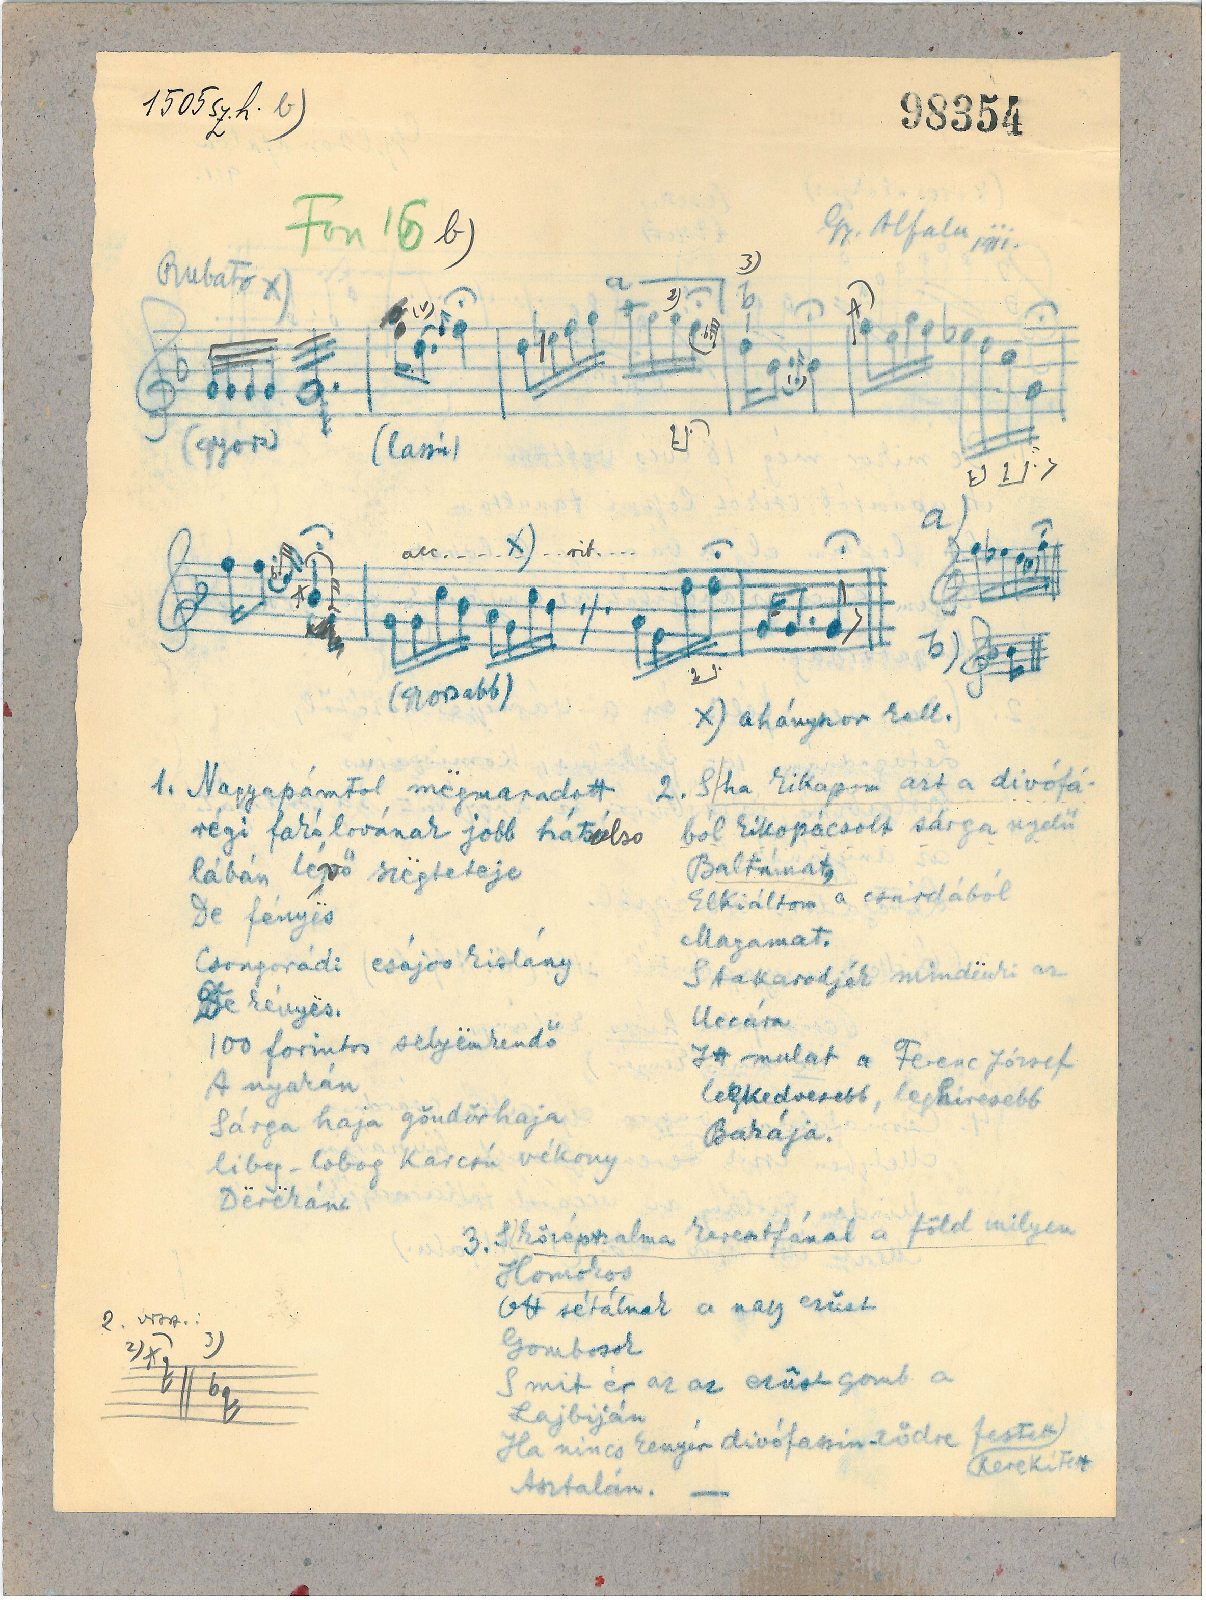 1505 sz. h. b)
98354
Fon 16 b)
Gy. Alfalu 1911.
Rubato x)
a
3)
2)
(gyors)
(lassú)
acc. . . . . x) . . . rit. . .
a)
b)
(gyorsabb)
x) ahányszor kell.
1. Nagyapámtol mëgmaradott
régi fakó lovának jobb hátulso
lábán lévő szëgteteje
De fényës
Csongorádi csájos kislány
De kényës.
100 forintos selyënkendő
A nyakán
Sárga haja göndörhaja
libeg-lobog Karcsú vékony
Dërëkán
2. S/ha kikapom azt a divófá-
ból kikopácsolt sárga nyelű
Baltámat,
Elkiáltom a csárdából
Magamat.
S takarodjék mindënki az
Uccára
Itt mulat a Ferenc József
legkedvesebb, leghiresebb
Bakája.
3. S/középszalma keresztfánál a föld milyen
Homokos
Ott sétálnak a nagy ezüst
Gombosok
S mit ér az az ezüst gomb a
Lajbiján
Ha nincs kenyér divófaszin-ződre festett)
(kerekitett
Asztalán. —
2. vssz.:
2) 3)